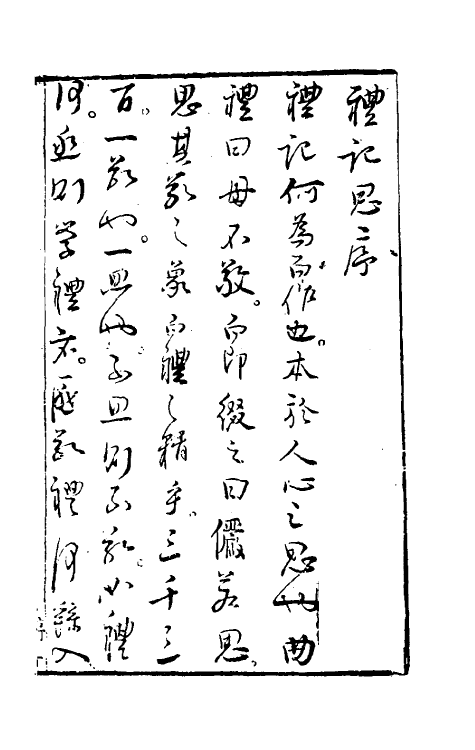 禮記思序
禮記何為而作也。本於人心之思也曲
禮曰毋不敬。而即綴之曰儼若思。
思其敬之象而禮之精乎。三千三
百。一敬也。一思也。不思則不敬。
何。則學禮者。禮何入